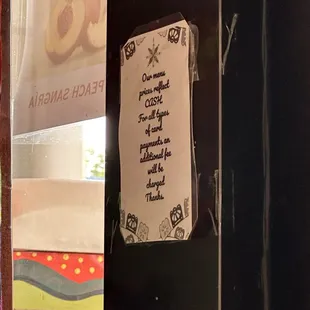 PEACH SANGRIA
Our menu
prices reflect
CASH
For all types
of card
payments an
additional fee
will be
charged
Thanks.